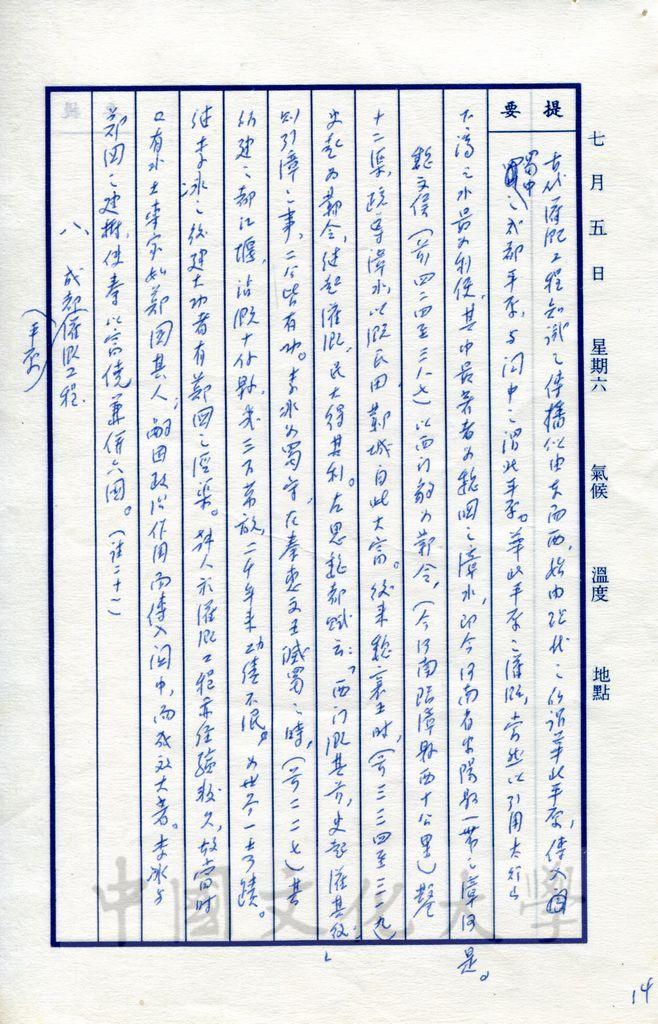 七月五日　星期六　氣候　溫度　地點
提要
古代灌溉工程知識之傳播似由東而西，始由現代之所謂華北平原，傳入
蜀中之成都平原，與關中之渭北平原。華北平原之灌溉，當然以引用太行山
下瀉之水最為利便，其中最著者為魏國之漳水，即今河南省安陽縣一帶之漳河是。
魏文侯（前四二四至三八七）以西門豹為鄴令，（今河南臨漳縣西十公里）鑿
十二渠，疏導漳水，以溉民田，鄴城自此大富。後來魏襄王時，（前三三四至三一九）
史起為鄴令，繼起灌溉，民大得其利。左思魏都賦云：「西門溉其前，史起灌其後」
則引漳之事，二公皆有功。李冰為蜀守，在秦惠文王滅蜀之時，（前二二七）其
所建之都江堰，沾溉十餘縣，幾三百萬畝，二千年來功績不泯，為世界一大奇蹟。
繼李冰之後建大功者有鄭國之涇渠。韓人於灌溉工程亦經驗較久，故當時
已有水土專家如鄭國其人，嗣因政治作用而傳入關中，而成效大著。李冰與
鄭國之建樹，使秦以富饒兼併六國。（註二十一）
八、成都灌溉工程
（平原）
14
中國文化大學